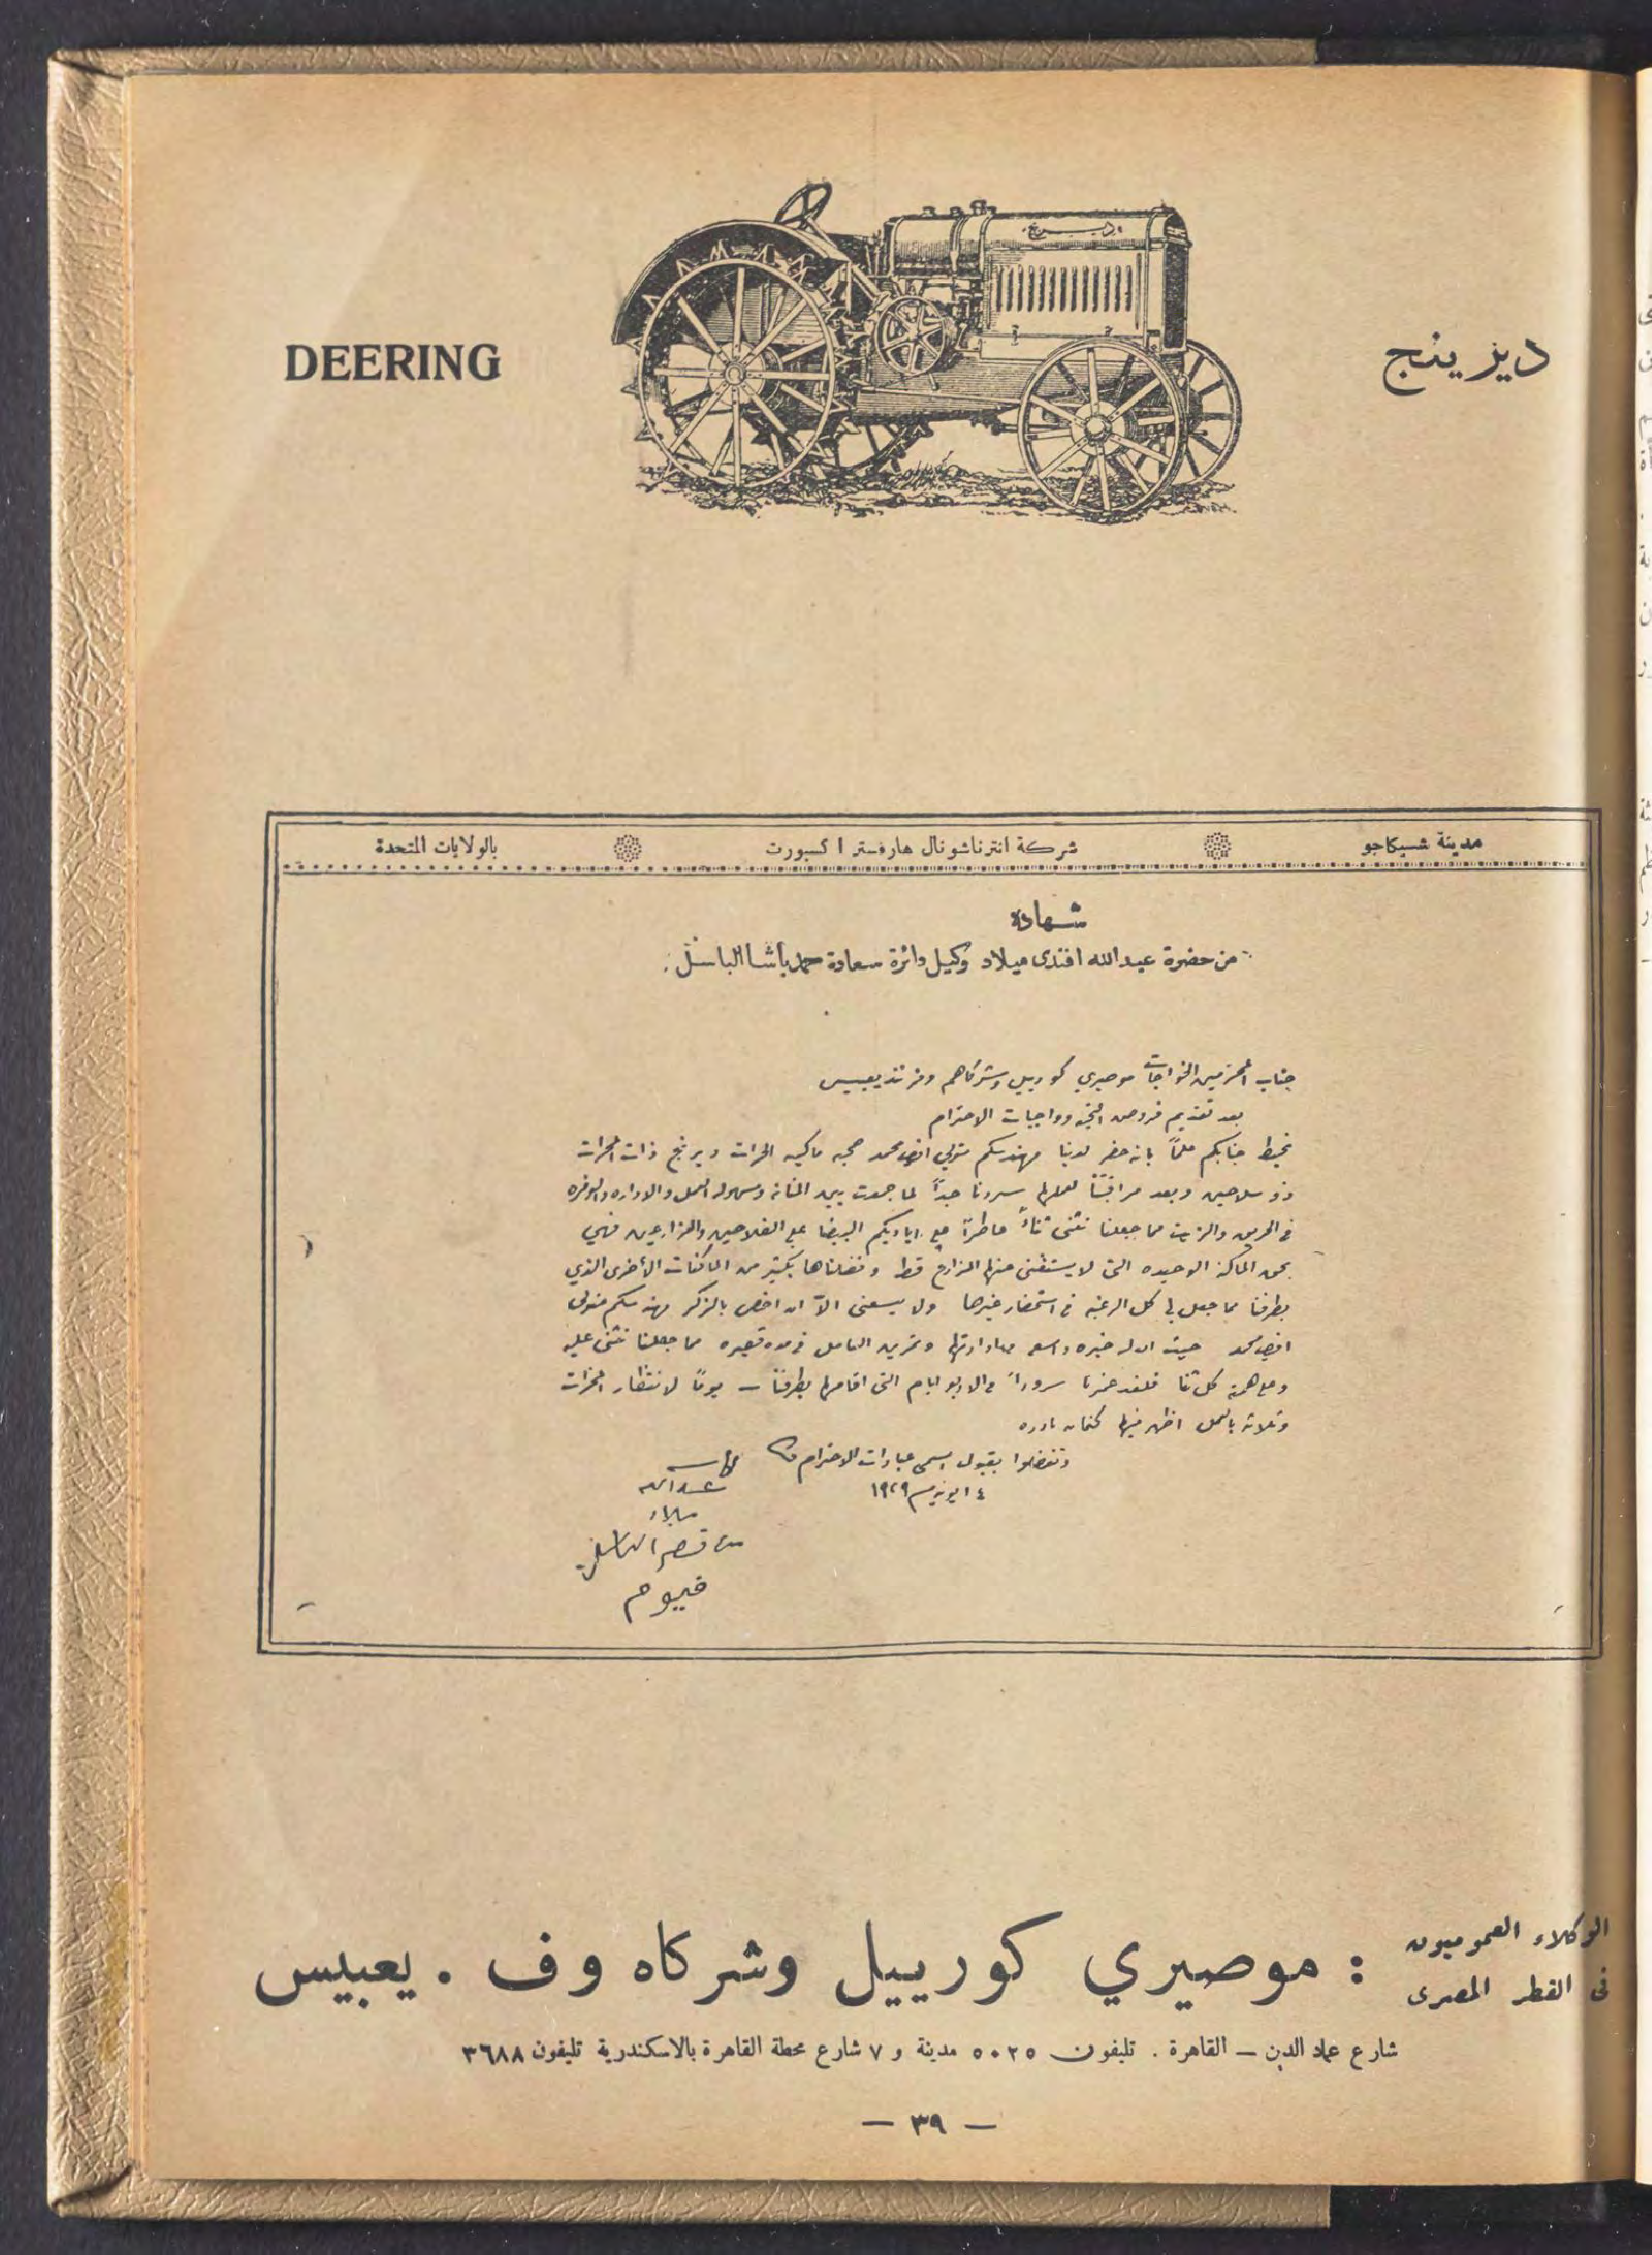 DEERING
ديرينج
ديرينج
مدينة شيكاجو
شركة انترناشونال هارفستر اكسبورت
بالولايات المتحدة
شهادة
من حضرة عبدالله افندى ميلاد وكيل دائرة سعادة حمد باشا الباسل
جناب المحترمين الخواجات موصيري كورييل وشركاهم وفرنند يعبيس
بعد تقديم فروض التحيه وواجبات الاحترام
نحيط جنابكم علماً بانه حضر لدينا مهندسكم متولي افندى محمد صحبه ماكينه الحراث ديرنج ذات المحراث
ذو سلاحين وبعد مراقبتنا لعملها سررنا جداً لما جمعت بين المتانه وسهوله العمل والاداره والوفره
فى الحريق والزيت مما جعلنا نثنى ثناءً عاطراً على اياديكم البيضا على الفلاحين والمزارعين فهي
بحق الماكنه الوحيده التى لا يستغنى عنها المزارع قط وفضلناها بكثير من الماكنات الأخرى الذي
بطرفنا مما جعل لي كل الرغبه فى استحضار غيرها ولا يسعنى الاّ ان اخص بالذكر مهندسكم متولى
افندى محمد حيث ان له خبره واسعه بادارتها وتمرين العامل فى مده قصيره مما جعلنا نثنى عليه
وعلى همته كل ثنا فلقد غمرنا سروراً فى الاربع ايام التى اقامها بطرفنا – يوماً لانتظار المحراث
وثلاثه بالعمل اظهر فيها كفائه نادره
وتفضلوا بقبول اسمى عبارات الاحترام
١٤ يونيو سـ ١٩٢٩
عبدالله
ميلاد
من قصر الباسل
فيوم
الوكلاء العموميون
فى القطر المصرى
: موصيري كورييل وشركاه وف . يعبيس
شارع عماد الدين – القاهرة . تليفون ٥٠٢٥ مدينة و ٧ شارع محطة القاهرة بالاسكندرية تليفون ٣٦٨٨
— ٣٩ —